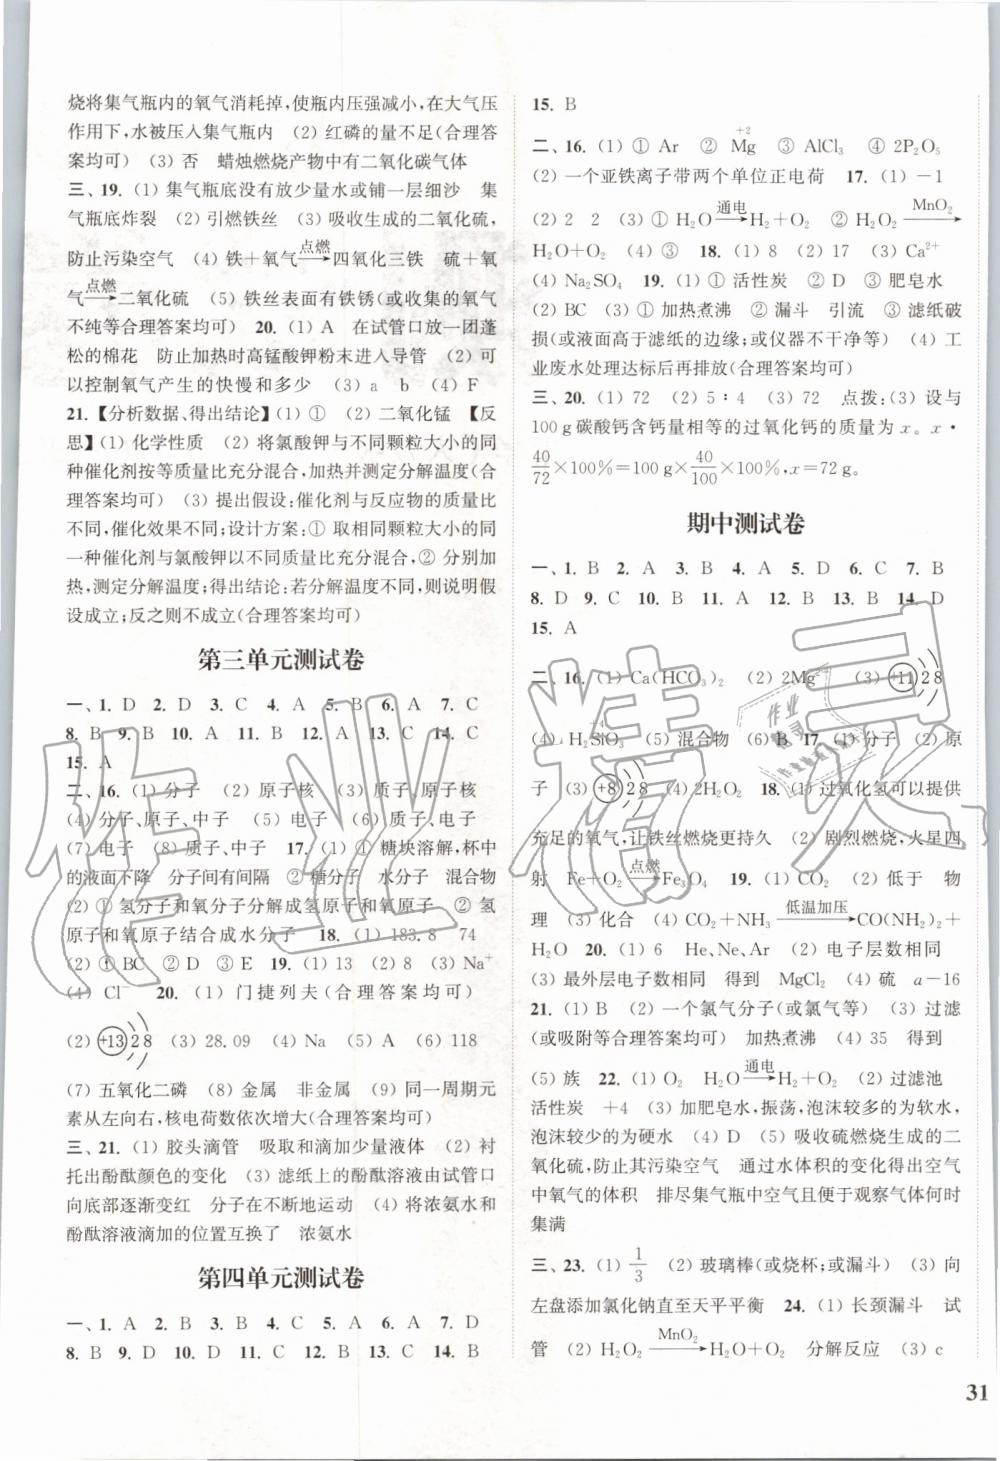 烧将集气瓶内的氧气消耗掉,使瓶内压强减小,在大气压
作用下,水被压入集气瓶内　(2) 红磷的量不足(合理答
案均可)　(3) 否　蜡烛燃烧产物中有二氧化碳气体
三、19. (1) 集气瓶底没有放少量水或铺一层细沙　集
气瓶底炸裂　(2) 引燃铁丝　(3) 吸收生成的二氧化硫,
防止污染空气　(4) 铁＋氧气 点燃→ 四氧化三铁　硫＋氧
气 点燃→ 二氧化硫　(5) 铁丝表面有铁锈(或收集的氧气
不纯等合理答案均可)　20. (1) A　在试管口放一团蓬
松的棉花　防止加热时高锰酸钾粉末进入导管　(2) 可
以控制氧气产生的快慢和多少　(3) a　b　(4) F
21.【分析数据、得出结论】(1) ①　(2) 二氧化锰　【反
思】(1) 化学性质　(2) 将氯酸钾与不同颗粒大小的同
种催化剂按等质量比充分混合,加热并测定分解温度(合
理答案均可)　(3) 提出假设:催化剂与反应物的质量比
不同,催化效果不同;设计方案:① 取相同颗粒大小的同
一种催化剂与氯酸钾以不同质量比充分混合,② 分别加
热,测定分解温度;得出结论:若分解温度不同,则说明假
设成立;反之则不成立(合理答案均可)
第三单元测试卷
一、1. D　2. D　3. C　4. A　5. B　6. A　7. C
8. B　9. B　10. A　11. B　12. A　13. C　14. C
15. A
二、16. (1) 分子　(2) 原子核　(3) 质子、原子核
(4) 分子、原子、中子　(5) 电子　(6) 质子、电子
(7) 电子　(8) 质子、中子　17. (1) ① 糖块溶解,杯中
的液面下降　分子间有间隔　② 糖分子　水分子　混合物
(2) ① 氢分子和氧分子分解成氢原子和氧原子　② 氢
原子和氧原子结合成水分子　18. (1) 183.8　74
(2) ① BC　② D　③ E　19. (1) 13　(2) 8　(3) Na⁺
(4) Cl⁻　20. (1) 门捷列夫(合理答案均可)
(2) +13 2 8　(3) 28.09　(4) Na　(5) A　(6) 118
(7) 五氧化二磷　(8) 金属　非金属　(9) 同一周期元
素从左向右,核电荷数依次增大(合理答案均可)
三、21. (1) 胶头滴管　吸取和滴加少量液体　(2) 衬
托出酚酞颜色的变化　(3) 滤纸上的酚酞溶液由试管口
向底部逐渐变红　分子在不断地运动　(4) 将浓氨水和
酚酞溶液滴加的位置互换了　浓氨水
第四单元测试卷
一、1. A　2. B　3. B　4. C　5. A　6. A　7. D
8. B　9. D　10. D　11. C　12. B　13. C　14. B
15. B
二、16. (1) ① Ar　② Mg(+2)　③ AlCl₃　④ 2P₂O₅
(2) 一个亚铁离子带两个单位正电荷　17. (1) －1
(2) 2　2　(3) ① H₂O 通电→ H₂＋O₂　② H₂O₂ MnO₂→
H₂O＋O₂　(4) ③　18. (1) 8　(2) 17　(3) Ca²⁺
(4) Na₂SO₄　19. (1) ① 活性炭　② D　③ 肥皂水
(2) BC　(3) ① 加热煮沸　② 漏斗　引流　③ 滤纸破
损(或液面高于滤纸的边缘;或仪器不干净等)　(4) 工
业废水处理达标后再排放(合理答案均可)
三、20. (1) 72　(2) 5∶4　(3) 72　点拨:(3) 设与
100 g碳酸钙含钙量相等的过氧化钙的质量为 x。x·
40/72×100％＝100 g×40/100×100％,x＝72 g。
期中测试卷
一、1. B　2. A　3. B　4. A　5. D　6. C　7. B
8. D　9. C　10. B　11. A　12. B　13. B　14. D
15. A
二、16. (1) Ca(HCO₃)₂　(2) 2Mg²⁺　(3) +11 2 8
(4) H₂SiO₃(+4)　(5) 混合物　(6) B　17. (1) 分子　(2) 原
子　(3) +8 2 8　(4) 2H₂O₂　18. (1) 过氧化氢可以提供
充足的氧气,让铁丝燃烧更持久　(2) 剧烈燃烧,火星四
射　Fe＋O₂ 点燃→ Fe₃O₄　19. (1) CO₂　(2) 低于　物
理　(3) 化合　(4) CO₂＋NH₃ 低温加压→ CO(NH₂)₂＋
H₂O　20. (1) 6　He、Ne、Ar　(2) 电子层数相同
(3) 最外层电子数相同　得到　MgCl₂　(4) 硫　a－16
21. (1) B　(2) 一个氯气分子(或氯气等)　(3) 过滤
(或吸附等合理答案均可)　加热煮沸　(4) 35　得到
(5) 族　22. (1) O₂　H₂O 通电→ H₂＋O₂　(2) 过滤池
活性炭　＋4　(3) 加肥皂水,振荡,泡沫较多的为软水,
泡沫较少的为硬水　(4) D　(5) 吸收硫燃烧生成的二
氧化硫,防止其污染空气　通过水体积的变化得出空气
中氧气的体积　排尽集气瓶中空气且便于观察气体何时
集满
三、23. (1) 1/3　(2) 玻璃棒(或烧杯;或漏斗)　(3) 向
左盘添加氯化钠直至天平平衡　24. (1) 长颈漏斗　试
管　(2) H₂O₂ MnO₂→ H₂O＋O₂　分解反应　(3) c
31
作业精灵